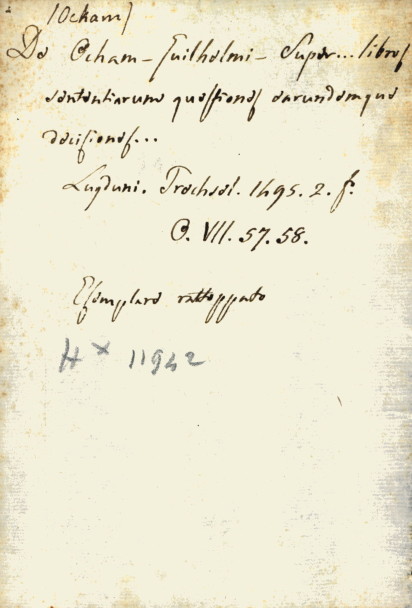 [Ockam]
De Ocham - Guilhelmi - Super... libros
sententiarum questiones earundemque
decisiones...
Lugduni. Trechsel. 1495. 2. f.
C. VII. 57. 58.
Esemplare rattoppato
H x 11942